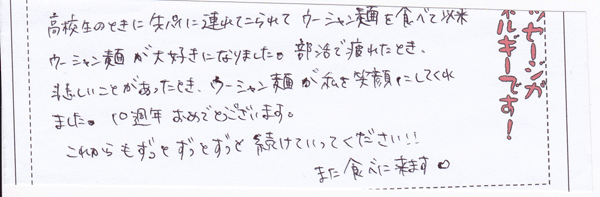 高校生のときに先パイに連れてこられて ウーシャン麺を食べて以来
ウーシャン麺が大好きになりました。部活で疲れたとき、
悲しいことがあったとき、ウーシャン麺が私を笑顔にしてくれ
ました。10周年 おめでとうございます。
これからも ずっと ずっと ずっと 続けていってください!!
また 食べに来ます。
ッセージが
ネルギーです!